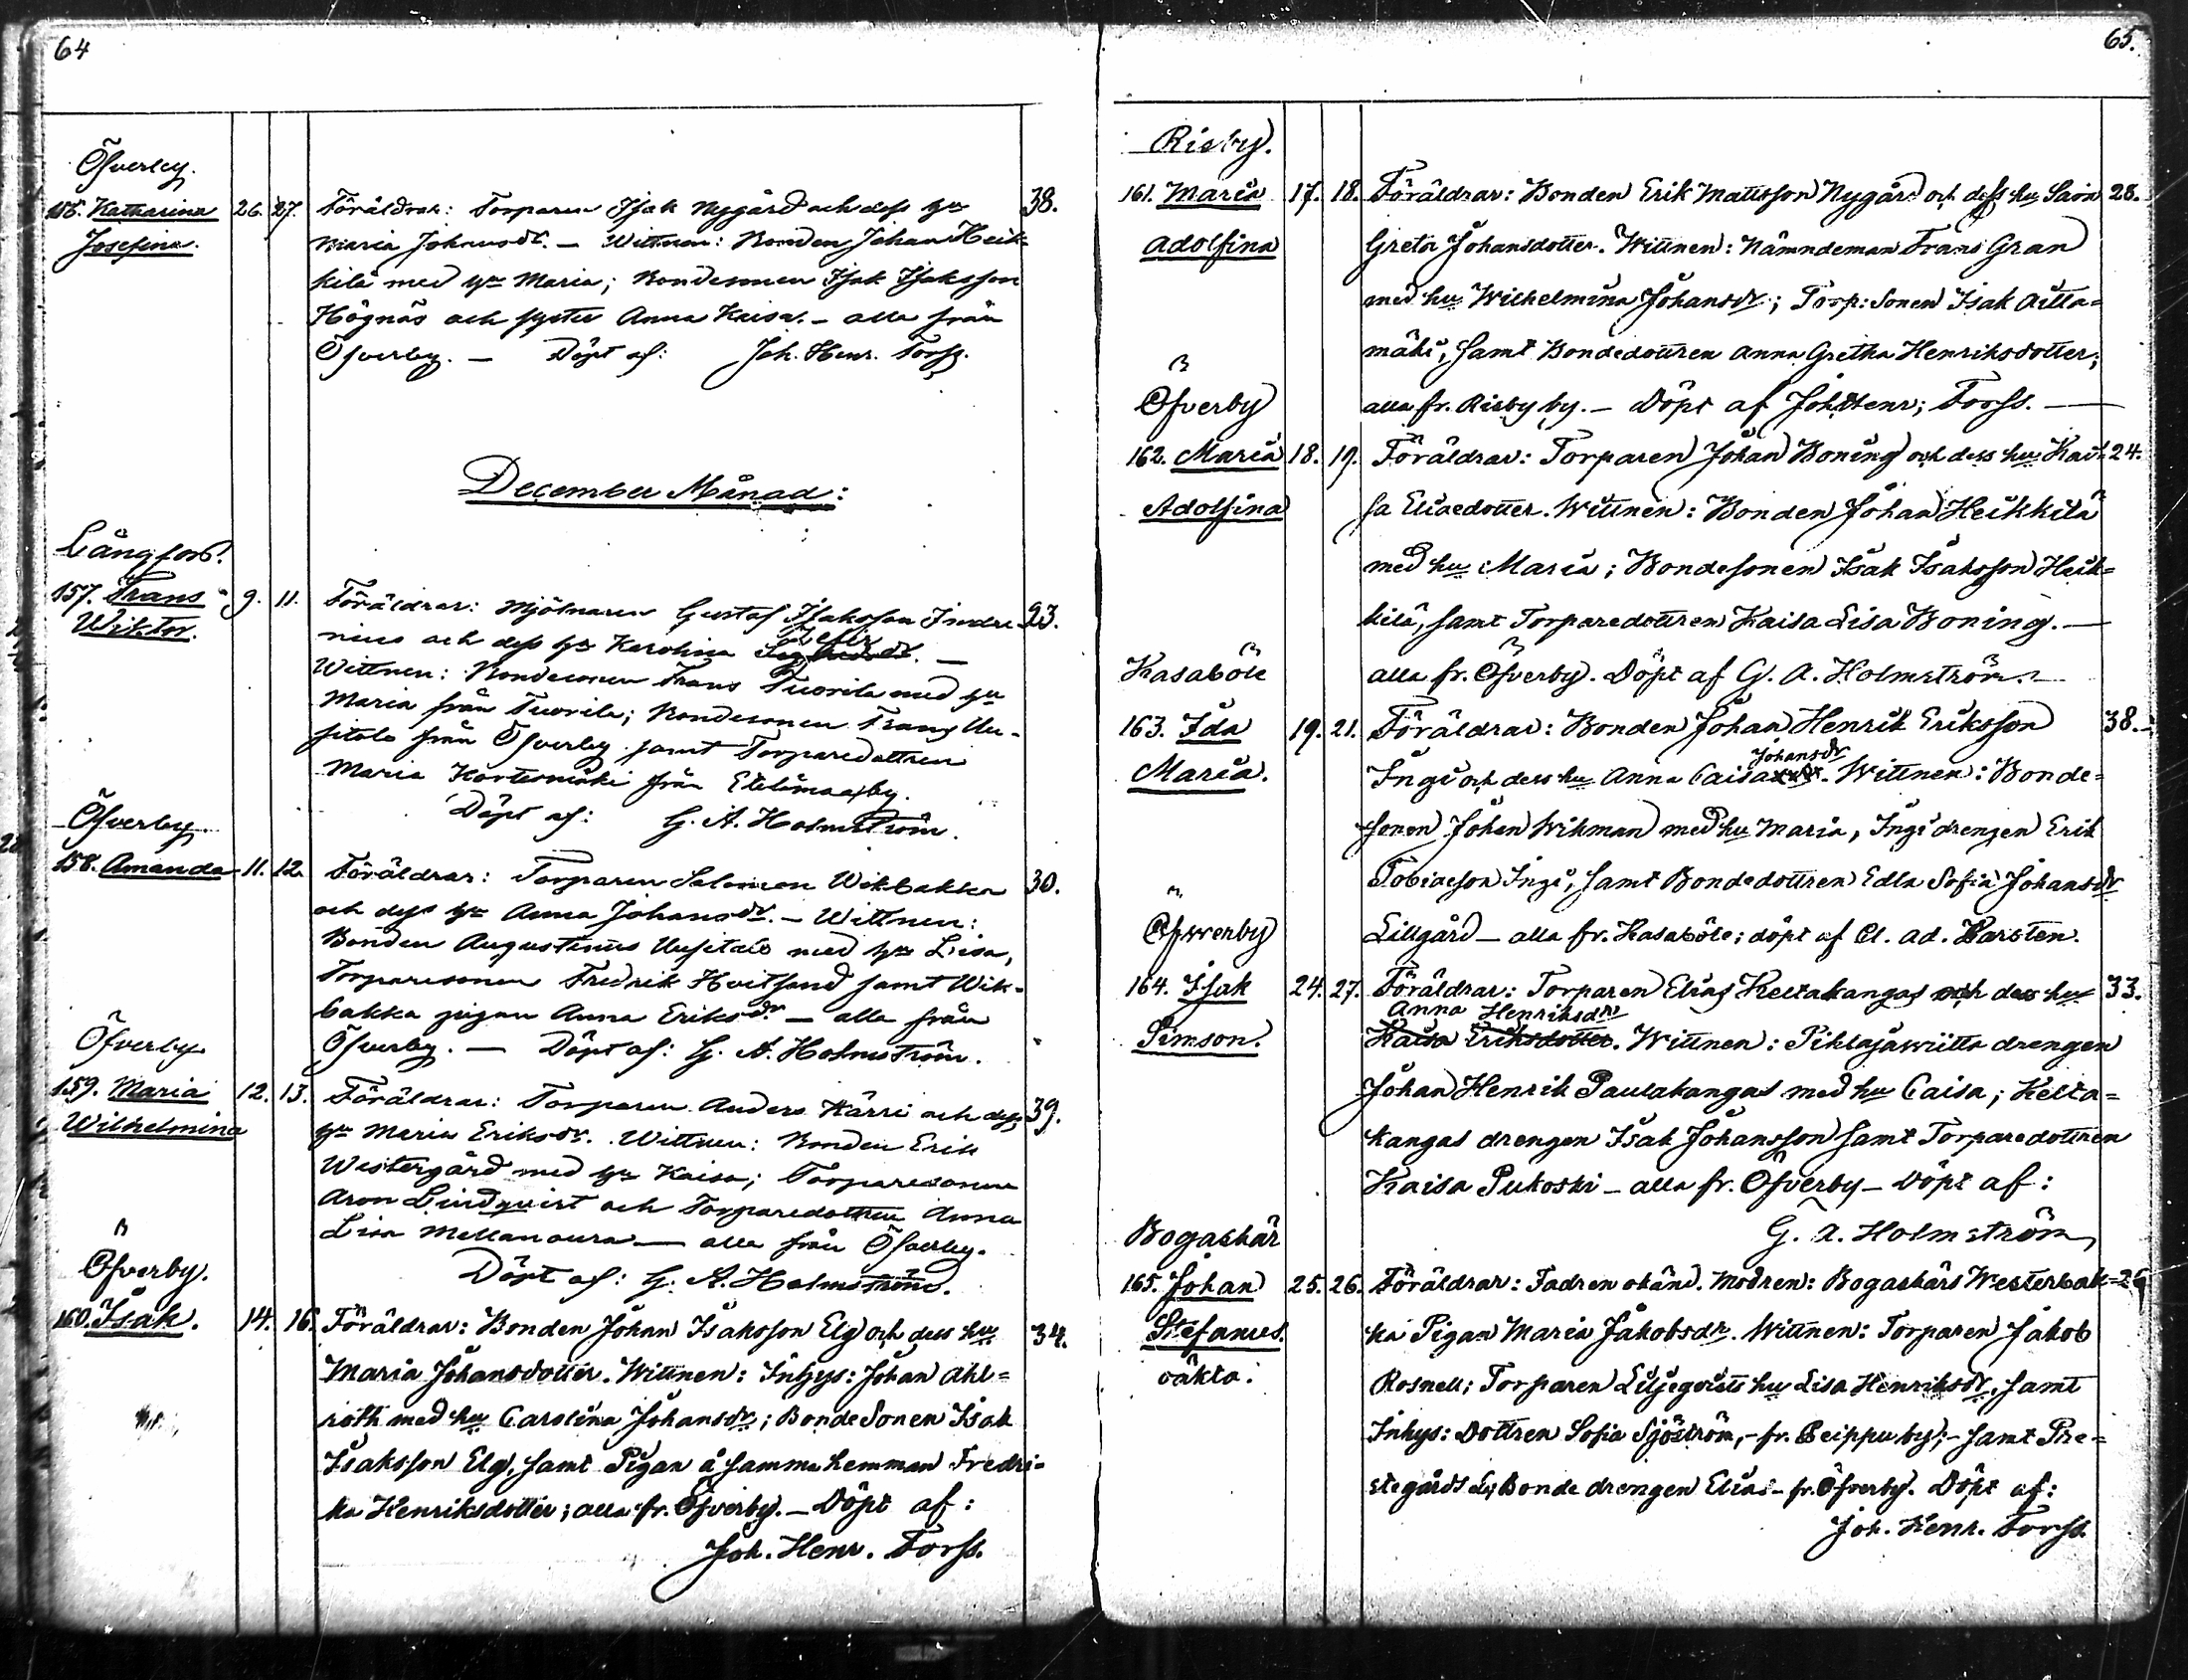 64
Öfverby.
156. Katharina 26. 27. Föräldrar: Torparen Isak Nygård och dess hu 38.
Josefina. Maria Johansdr. — Wittnen: Bonden Johan Heik-
kilä med hu Maria; Bondesonen Isak Isaksson
Högnäs och syster Anna Kaisa. — alla från
Öfverby. — Döpt af: Joh. Henr. Forss.
December Månad:
Långfors.
157. Frans 9. 11. Föräldrar: Mjölnaren Gustaf Isaksson 23.
Wiktor. och dess hu Karolina
Wittnen: Bondesonen Frans Tuorila med hu
Maria från Tuorila; Bondesonen Frans Uu-
sitalo från Öfverby samt Torparedottren
Maria Kortesmäki från
Döpt af: G. A. Holmström.
Öfverby.
158. Amanda 11. 12. Föräldrar: Torparen Salomon Wikbakka 30.
och dess hu Anna Johansdr. — Wittnen:
Bonden Augustinus Uusitalo med hu Lisa,
Torparesonen Fredrik Hvitsand samt Wik-
bakka pigan Anna Eriksdr — alla från
Öfverby. — Döpt af: G. A. Holmström.
Öfverby
159. Maria 12. 13. Föräldrar: Torparen Anders Kärri och dess 39.
Wilhelmina hu Maria Eriksdr. Wittnen: Bonden Erik
Westergård med hu Kaisa; Torparesonen
Aron Lindqvist och Torparedottren Anna
Lisa — alla från Öfverby.
Döpt af: G. A. Holmström.
Öfverby.
160. Isak. 14. 16. Föräldrar: Bonden Johan Isaksson Elg och dess hu 34.
Maria Johansdotter. Wittnen: Inhys: Johan Ahl=
roth med hu Carolina Johansdr; Bonde Sonen Isak
Isaksson Elg, samt Pigan å samma hemman Fredri=
ka Henriksdotter; alla fr. Öfverby. — Döpt af:
Joh. Henr. Forss.
65.
Risby.
161. Maria 17. 18. Föräldrar: Bonden Erik Mattsson Nygård och dess hu 28.
Adolfina Greta Johansdotter. Wittnen: Nämndeman Frans Gran
med hu Wilhelmina Johansdr; Torp: Sonen Isak Aitta=
mäki, samt Bondedottren Anna Gretha Henriksdotter;
alla fr. Risby by. — Döpt af Joh Henr; Forss. —
Öfverby
162. Maria 18. 19. Föräldrar: Torparen Johan Boning och dess hu Kai= 24.
Adolfina sa Eliaedotter. Wittnen: Bonden Johan Heikkilä
med hu Maria; Bondesonen Isak Isaksson Heik=
kilä, samt Torparedottren Kaisa Lisa Boning. —
alla fr. Öfverby. Döpt af G. A. Holmström. —
Kasaböle
163. Ida 19. 21. Föräldrar: Bonden Johan Henrik Eriksson 38.
Johansdr
Maria. Ingi och dess hu Anna Caisa. Wittnen: Bonde=
sonen Johan Wikman med hu Maria, Ingi drengen Erik
Tobiaeson Ingi, samt Bondedottren Edla Sofia Johansdr
Lillgård — alla fr. Kasaböle; döpt af Cl. Ad. Barsten.
Öfwerby
164. Isak 24. 27. Föräldrar: Torparen Elias Keltakangas och dess hu 33.
Anna Henriksdr
Simson. Kaisa Eriksdotter. Wittnen: Pihlajawiitta drengen
Johan Henrik Paulakangas med hu Caisa; Kelta=
kangas drengen Isak Johansson samt Torparedottren
Kaisa Pukoski — alla fr. Öfverby — Döpt af:
G. A. Holmström
Bogaskär
165. Johan 25. 26. Föräldrar: Fadren okänd. Modren: Bogaskärs Westerbak=
Stefanus. ka Pigan Maria Jakobsdr. Wittnen: Torparen Jakob
oäkta. Rosnell; Torparen Liljeqvists hu Lisa Henriksdr, samt
Inhys: Dottren Sofia Sjöström, - fr. Peippu by; - samt Pre=
stegårds Bonde drengen Elias - fr. Öfverby. Döpt af:
Joh. Henr. Forss.